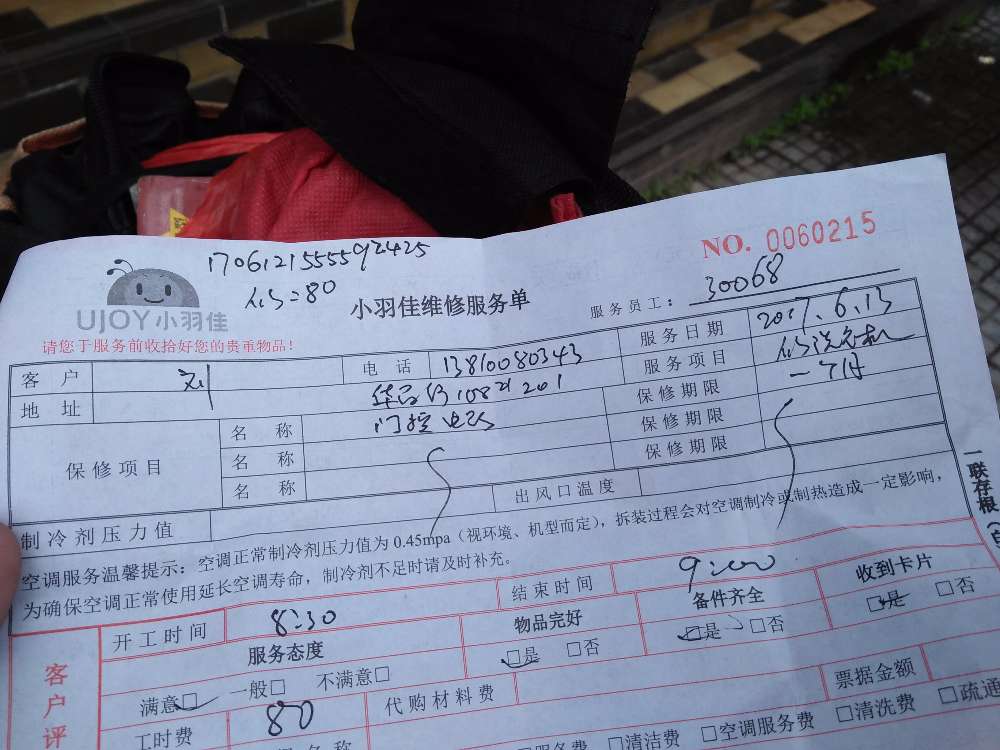 NO. 0060215
1706121555592425
修=80
UJOY小羽佳
小羽佳维修服务单
服务员工: 30068
请您于服务前收拾好您的贵重物品!
客 户 刘 电 话 13810080343 服务日期 2017.6.13
地 址 108 201 服务项目 修洗衣机
保修项目 名 称 门控 保修期限 一个月
名 称 保修期限
名 称 保修期限
制冷剂压力值 出风口温度
空调服务温馨提示: 空调正常制冷剂压力值为 0.45mpa (视环境、机型而定), 拆装过程会对空调制冷或制热造成一定影响,
为确保空调正常使用延长空调寿命, 制冷剂不足时请及时补充。
一联存根
开工时间 8:30 结束时间 9:00
客户评
服务态度 物品完好 备件齐全 收到卡片
满意□ 一般□ 不满意□ □是 □否 □是 □否 □是 □否
工时费 80 代购材料费 票据金额
名 称 服务费 □清洁费 □空调服务费 □清洗费 □疏通